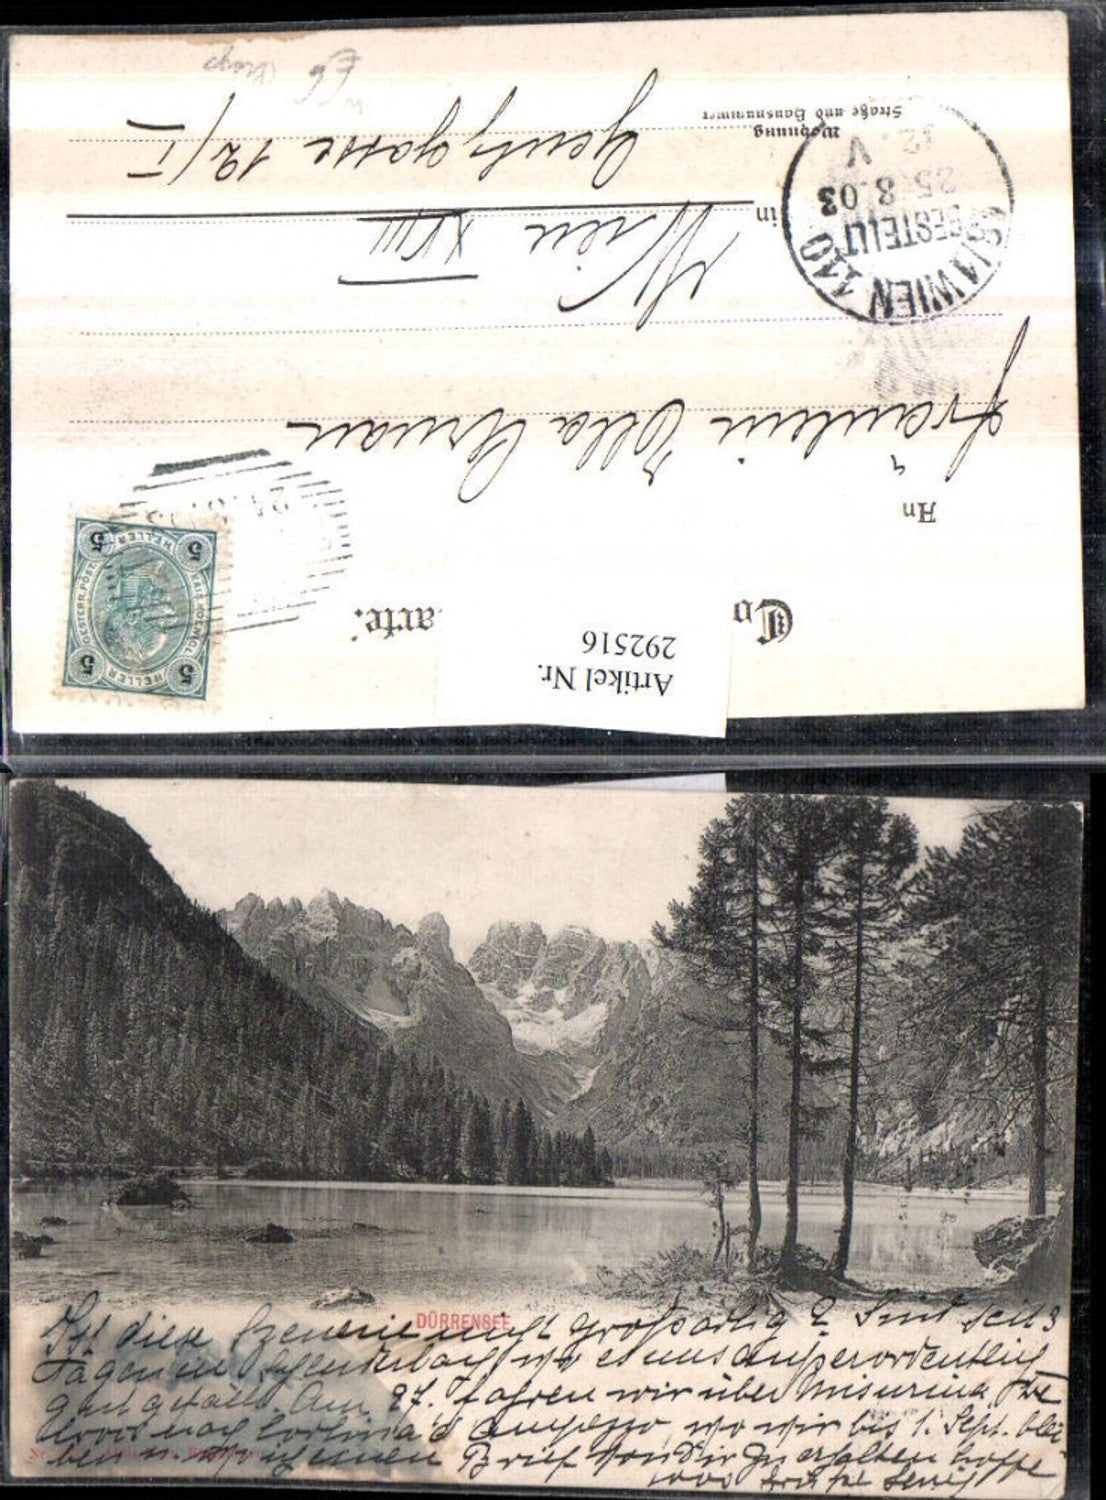 Co arte.
Artikel Nr.
292516
An
Fräulein Ella Urman
in Wien XVIII
Wohnung
Straße und Hausnummer
Gentzgasse 12/I
WIEN 110
BESTELLT
25.8.03
V
5 5
HELLER HELLER
5 5
DÜRRENSEE
Ist diese Szenerie nicht großartig? Sind seit 3
Tagen in Schluderbach, wo es uns außerordentlich
gut gefällt. Am 27. fahren wir über Misurina
nach Cortina d'Ampezzo, wo wir bis 1. Sept. blei
ben u. wo ich einen Brief von Dir zu erhalten hoffe